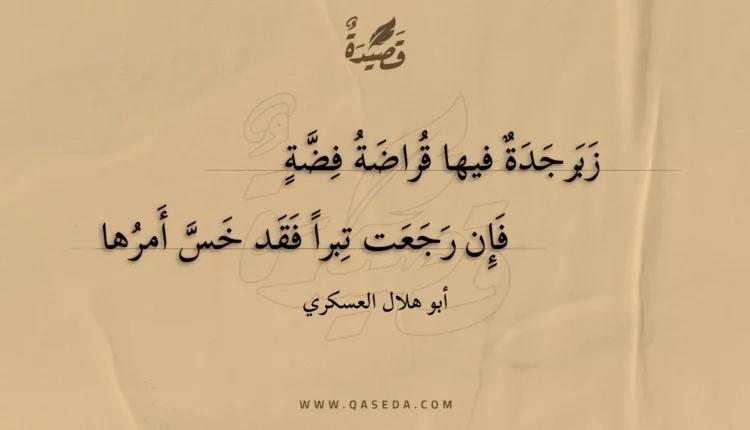 قَصِيدَةٌ
زَبَرجَدَةٌ فيها قُراضَةُ فِضَّةٍ
فَإِن رَجَعَت تِبراً فَقَد خَسَّ أَمرُها
أبو هلال العسكري
WWW.QASEDA.COM